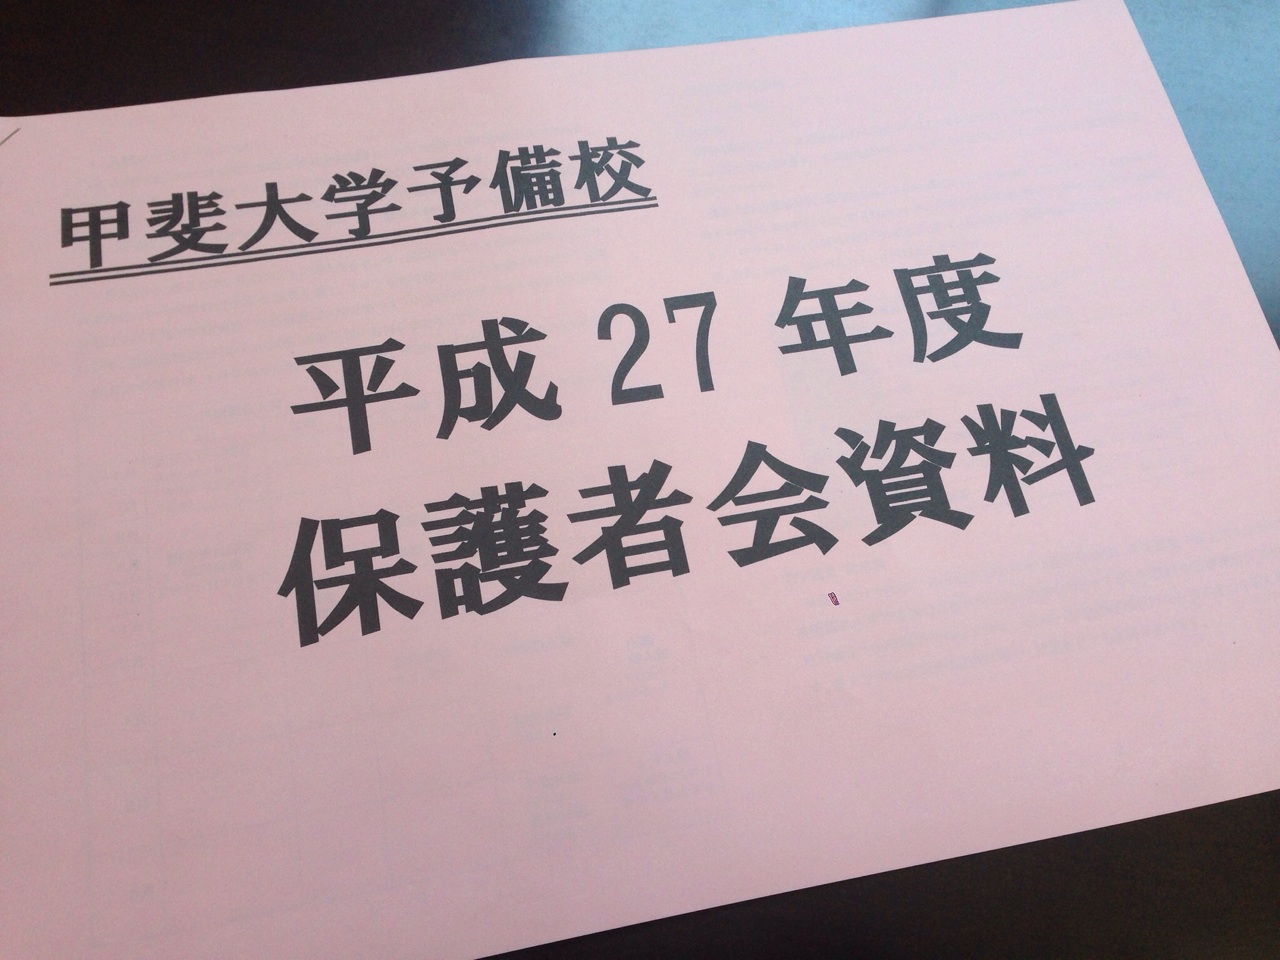 甲斐大学予備校
平成 27 年度
保護者会資料